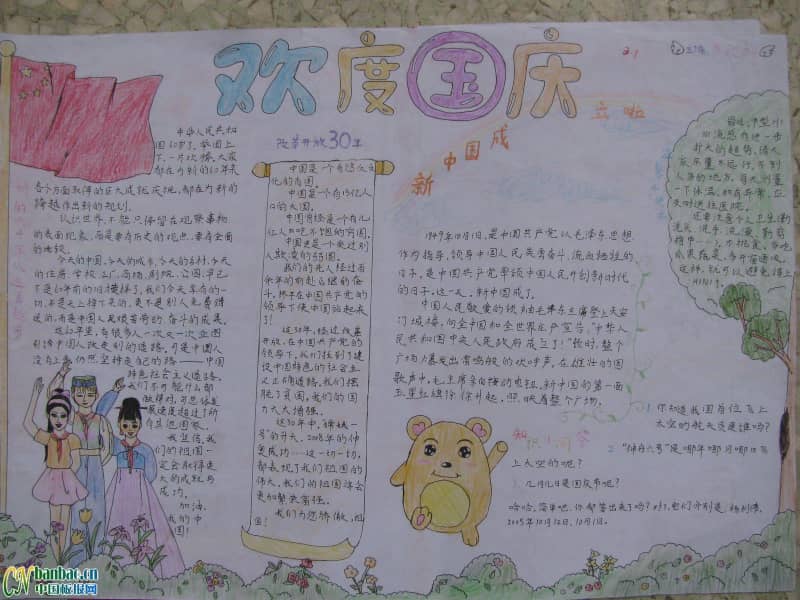 欢度国庆
中华人民共和
国60岁了，举国上
下，一片欢腾。大家
都在为新的60年或
各个方面取得的巨大成就庆祝，都在为新的
跨越作出新的规划。
认识世界，不能只停留在观察事物
的表面现象，而是要有历史的观点，要有全面
的比较。
今天的中国，今天的城市，今天的乡村，今天
的住房、学校、工厂、商场、剧院、公园，早已
不是60年前的旧模样了，我们今天享有的一
切，不是天上掉下来的，更不是别人免费赠
送的，而是中国人民艰苦奋斗的、奋斗的成果。
这60年里，有很多人一次又一次企图
引诱中国人改走别的道路，可是中国人
没有上当，仍然坚持走自己的路——中国
特色社会主义道路。
我们不可能什么都
做得对，可总体发
展速度超过了所
有其他国家。
我坚信，我
们的祖国一
定会取得更
大的成就与
成功。
加油，
我的中
国！
改革开放30年
中国是一个有悠久文
化的古国。
中国是一个有13亿人
口的大国。
中国曾经是一个有几
亿人口吃不饱的穷国。
中国更是一个受过别
人欺凌的弱国。
我们的先人经过百
余年的前赴后继的奋
斗，终于在中国共产党的
领导下使中国站起来
了！
这30年，经过改革
开放，在中国共产党的
领导下，我们找到了建
设中国特色的社会主
义正确道路，我们摆
脱了贫困，我们的国
力大大增强。
这30年中，"神娥一
号"的升天，2008年的体
奥成功……这一切一切，
都表现了我们祖国的
伟大，我们的祖国将会
更加繁荣富强。
我们为您骄傲，祖
国！
新中国成立啦
1949年10月1日，是中国共产党以毛泽东思想
作为指导，领导中国人民英勇奋斗，流血牺牲的
日子，是中国共产党带领中国人民开创新时代
的日子。这一天，新中国成了。
中国人民敬爱的领袖毛泽东主席登上天安
门城楼，向全中国和全世界庄严宣告："中华人
民共和国中央人民政府成立了！"顿时，整个
广场爆发出雷鸣般的欢呼声，在雄壮的国
歌声中，毛主席亲自按的电钮，新中国的第一面
五星红旗徐徐升起，照映着整个广场。
知识小问答
1. 你知道我国首位飞上
太空的航天员是谁吗？
2. "神舟六号"是哪年哪月哪日飞
上太空的呢？
3. 几月几日是国庆节呢？
哈哈，简单吧，你都答出来了吗？对了，它们分别是：杨利伟，
2005年10月12日，10月1日。
最近，甲型H1N1
流感有进一步
扩大的趋势，请大
家尽量不远行，不到
人多的地方，每天测量
一下体温，如有异常，应
及时送往医院。
还要注意个人卫生，勤
洗手，
HIN19。
CN banbao.cn
中国板报网